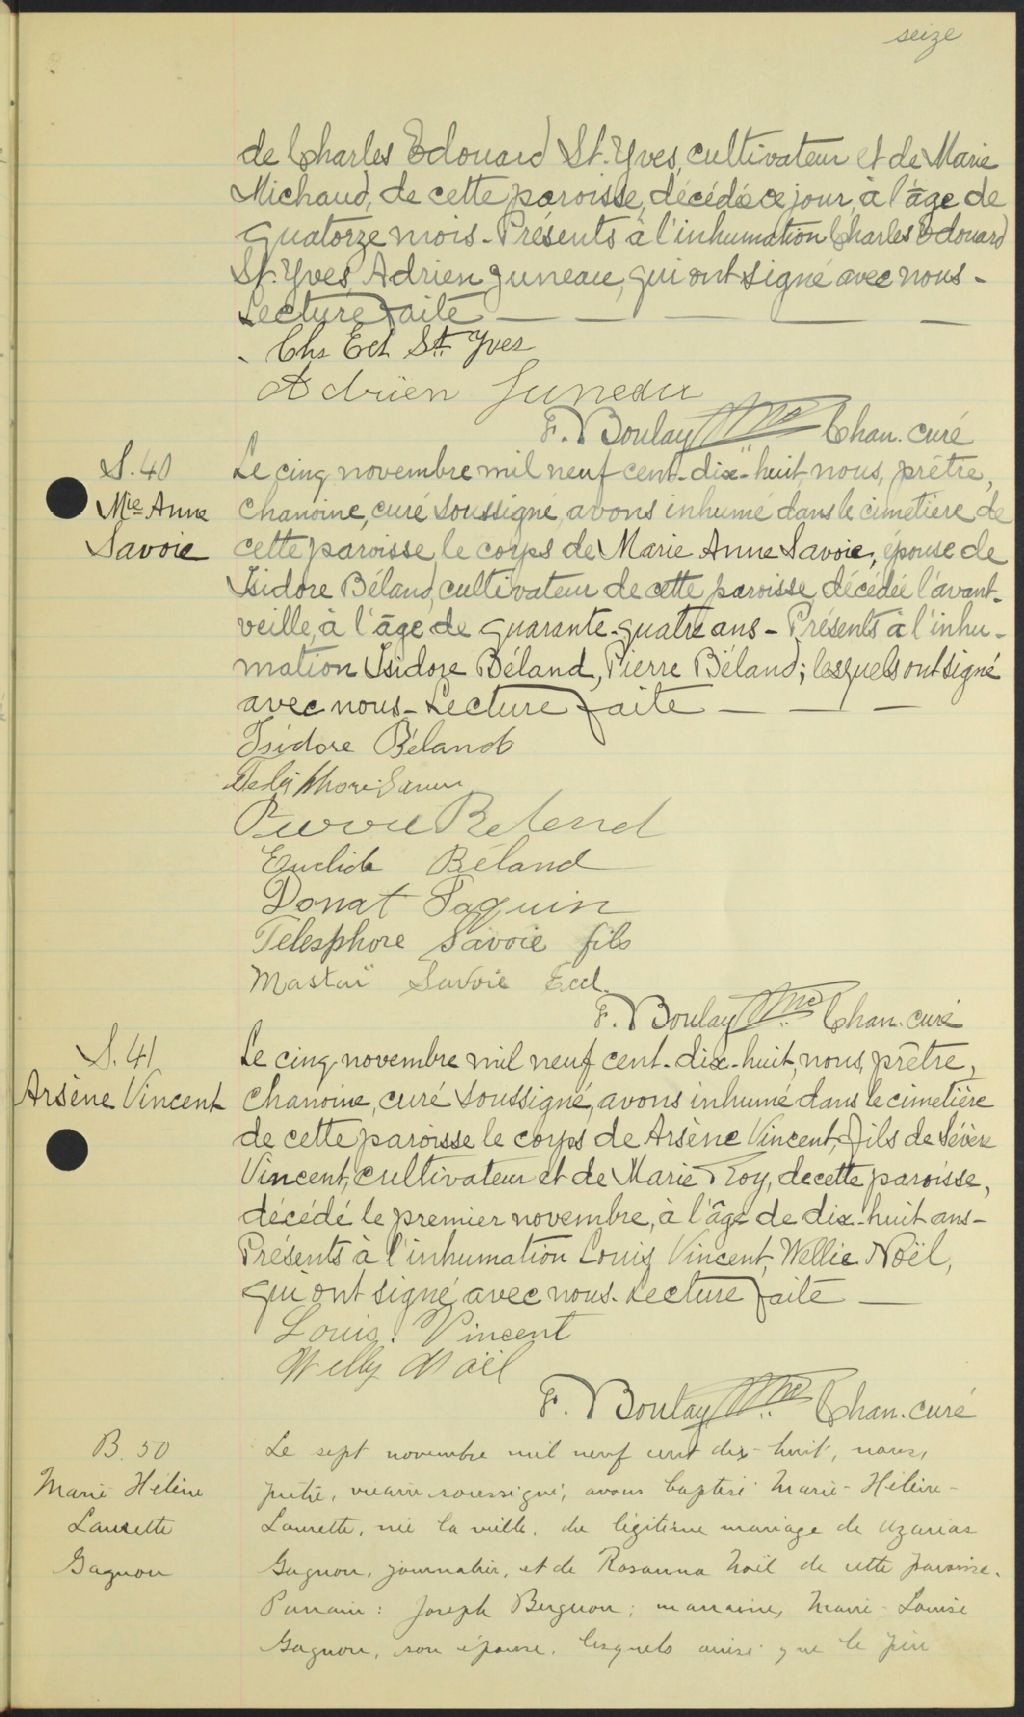 seize
de Charles Edouard St. Yves, cultivateur et de Marie
Michaud, de cette paroisse, décédée ce jour, à l'âge de
quatorze mois - Présents à l'inhumation Charles Edouard
St. Yves, Adrien Juneau, qui ont signé avec nous -
Lecture faite
Chs Ed St. Yves
Adrien Juneau
F. Boulay Ptre Chan. curé
S. 40
Mie Anne
Savoie
Le cinq novembre mil neuf cent-dix-huit, nous, prêtre,
chanoine, curé soussigné, avons inhumé dans le cimetière de
cette paroisse, le corps de Marie Anne Savoie, épouse de
Isidore Béland, cultivateur de cette paroisse, décédée l'avant-
veille, à l'âge de quarante-quatre ans - Présents à l'inhu-
mation Isidore Béland, Pierre Béland; lesquels ont signé
avec nous - Lecture faite
Isidore Béland
Pierre Beland
Euclide Béland
Donat Paquin
Telesphore Savoie fils
Mastaï Savoie Eccl.
F. Boulay Ptre Chan. curé
S. 41
Arsène Vincent
Le cinq novembre mil neuf cent-dix-huit, nous, prêtre,
chanoine, curé soussigné, avons inhumé dans le cimetière
de cette paroisse le corps de Arsène Vincent, fils de Sévère
Vincent, cultivateur et de Marie Roy, de cette paroisse,
décédé le premier novembre, à l'âge de dix-huit ans -
Présents à l'inhumation Louis Vincent, Wellie Noël,
qui ont signé avec nous. Lecture faite
Louis Vincent
Willy Noël
F. Boulay Ptre Chan. curé
B. 50
Marie Hélène
Laurette
Gagnon
Le sept novembre mil neuf cent dix-huit, nous,
prêtre, vicaire soussigné, avons baptisé Marie-Hélène-
Laurette, née la veille, du légitime mariage de Azarias
Gagnon, journalier, et de Rosanna Noël de cette paroisse.
Parrain: Joseph Bergeron; marraine, Marie-Louise
Gagnon, son épouse, lesquels ainsi que le père